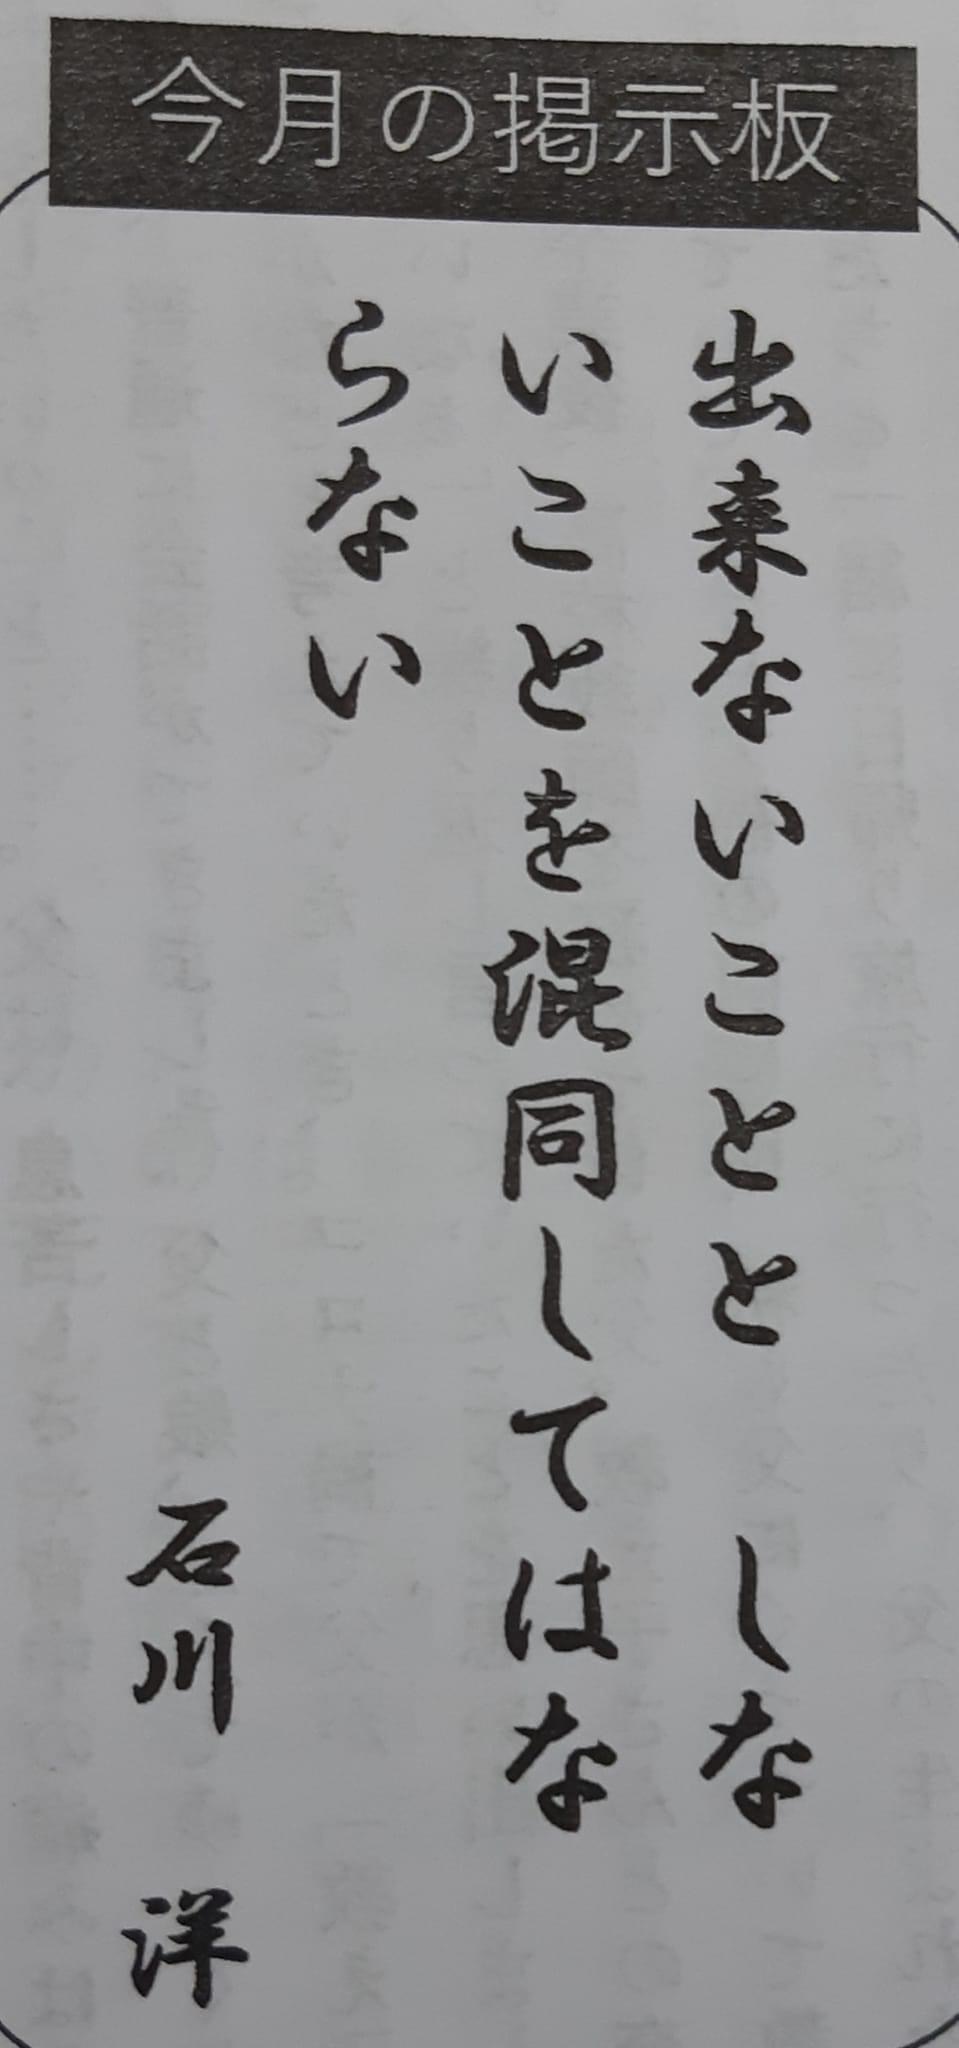 今月の掲示板
出来ないことと　しな
いことを混同してはな
らない
石川　洋